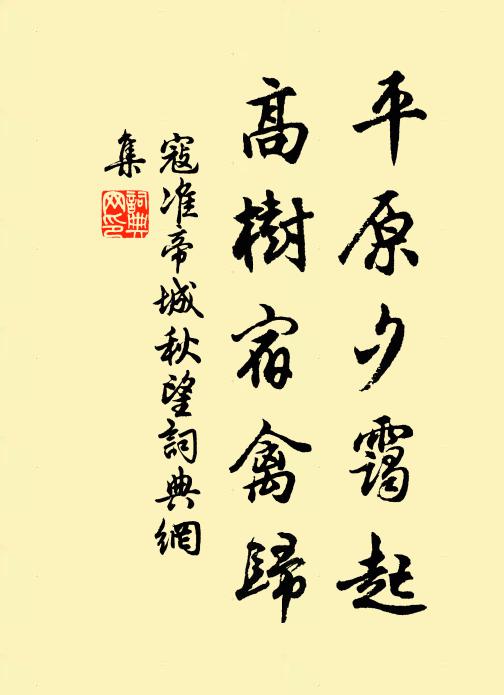 平原夕靄起
高樹宿禽歸
寇准帝城秋望詞典網
集
詞典
网印